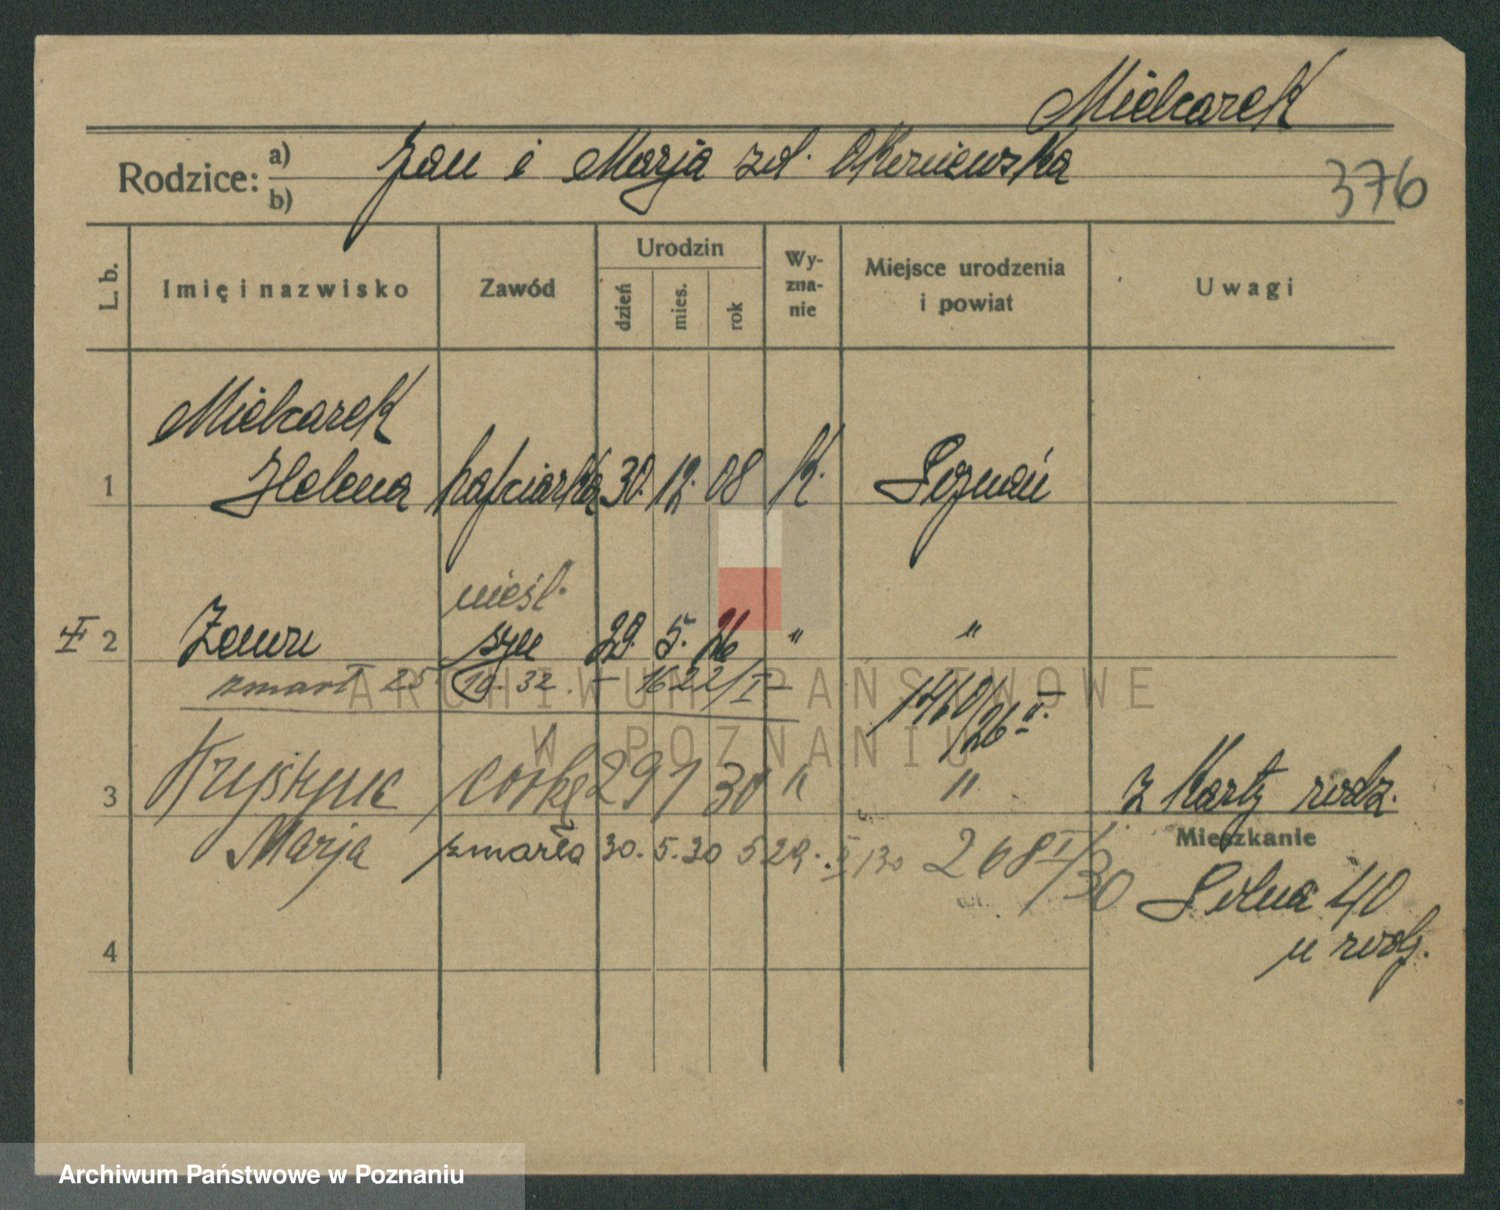 Mielcarek
Rodzice: a) Jan i Marja zd.
b)
376
L. b.
Imię i nazwisko
Zawód
Urodzin
dzień
mies.
rok
Wy-
zna-
nie
Miejsce urodzenia
i powiat
Uwagi
Mielcarek
1 Helena hafciarka 30. 12. 08 k. Poznań
nieśl.
2 Zenon syn 29. 5. 26 " "
zmarł 25 10. 32. – 1622/I –
1460/26 II.
3 Krystyna córka 29 1 30 " " z Karty rodz.
Marja zmarła 30. 5. 30 529. II/30 268 I/30
Mieszkanie
40
u rodz.
4
ARCHIWUM PAŃSTWOWE
W POZNANIU
Archiwum Państwowe w Poznaniu